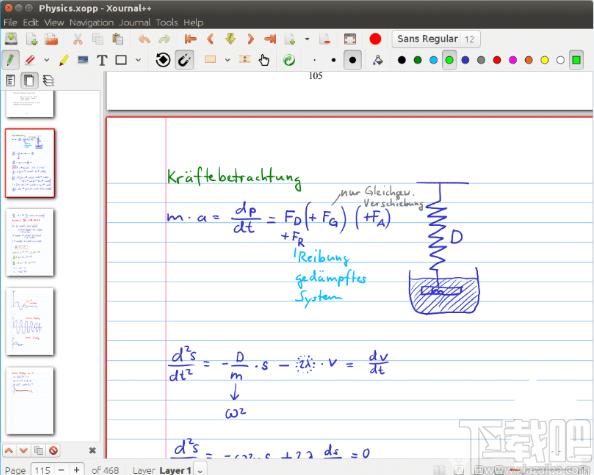 Physics.xopp - Xournal++
File Edit View Navigation Journal Tools Help
Sans Regular 12
105
Kräftebetrachtung
nur Gleichgew.
Verschiebung
m · a = dp/dt = F_D (+ F_G) (+F_A)
+ F_R
D
Reibung
gedämpftes
System
d²s/dt² = - D/m · s - 2λ · v = dv/dt
ω²
d²s = -ω² · s + 2λ ds = 0
Page 115 − + of 468 Layer Layer 1
下载吧